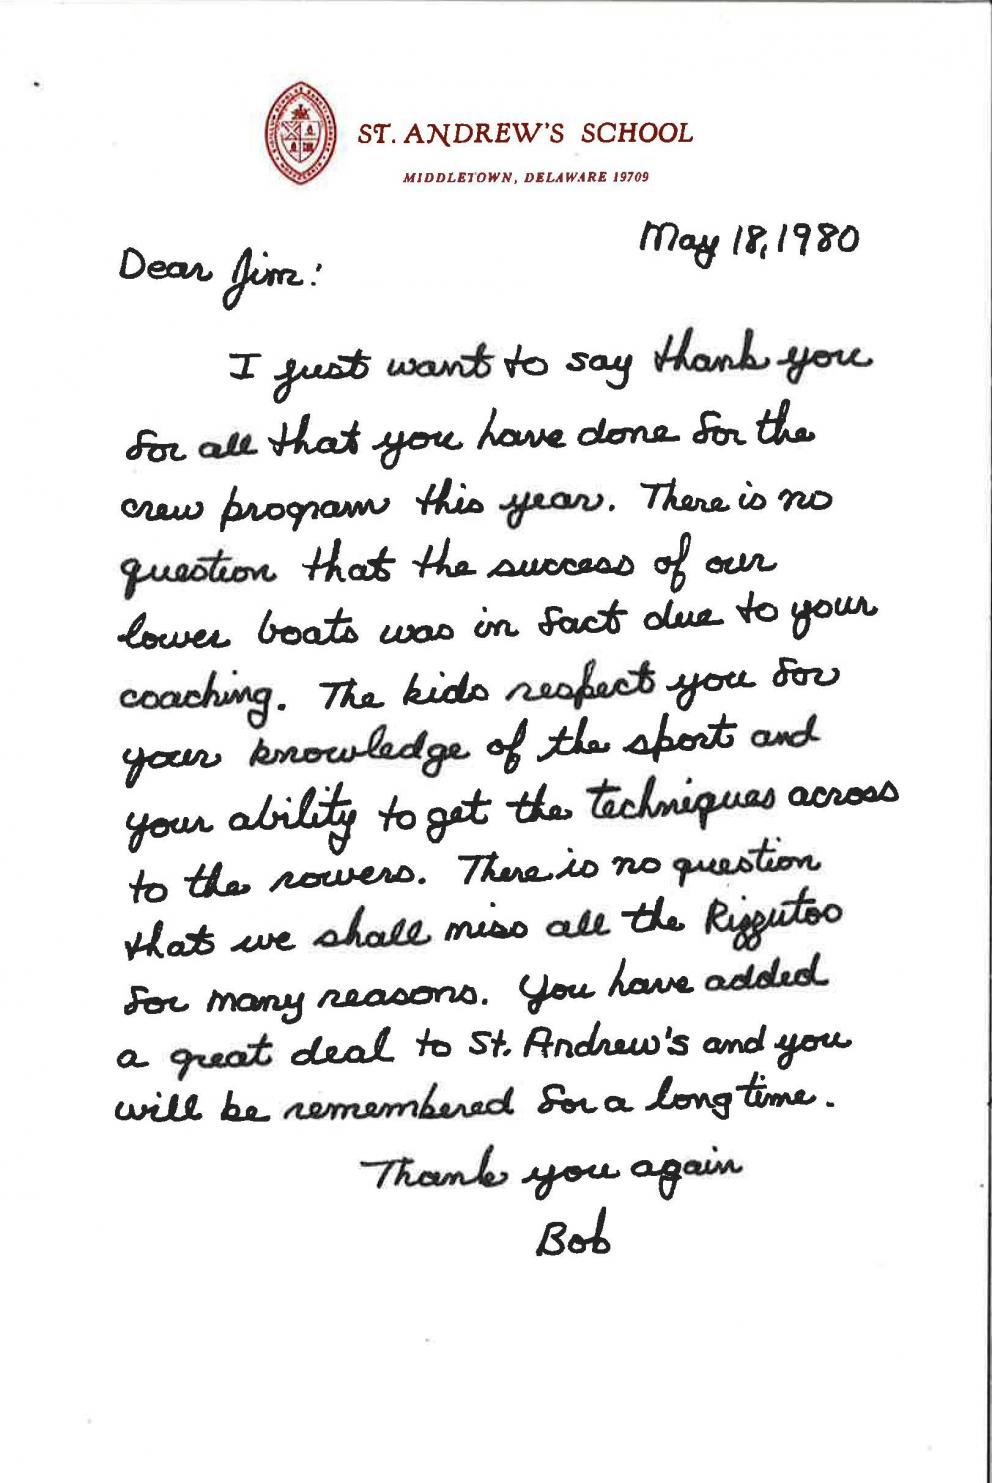 ST. ANDREW'S SCHOOL
MIDDLETOWN, DELAWARE 19709
May 18, 1980
Dear Jim:
I just want to say thank you
for all that you have done for the
crew program this year. There is no
question that the success of our
lower boats was in fact due to your
coaching. The kids respect you for
your knowledge of the sport and
your ability to get the techniques across
to the rowers. There is no question
that we shall miss all the Rizzutos
for many reasons. You have added
a great deal to St. Andrew's and you
will be remembered for a long time.
Thank you again
Bob